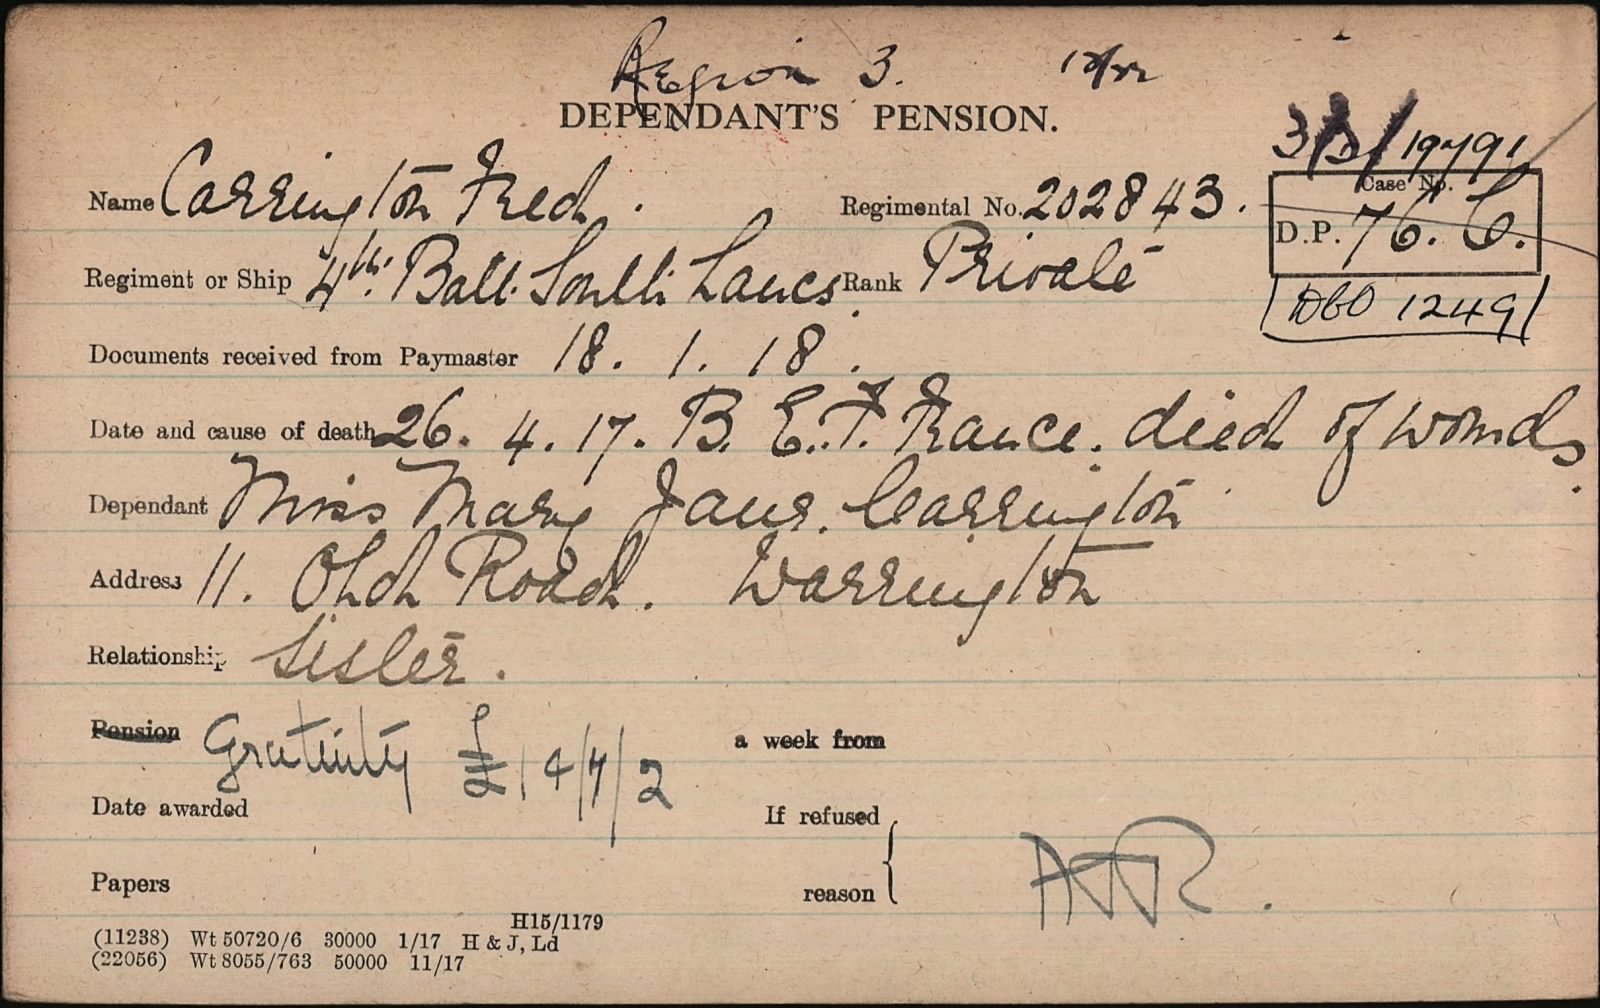 Region 3. 12/22
DEPENDANT'S PENSION.
3/D/19791
Name Carrington Fred. Regimental No. 202843.
Case No.
D.P. 76. C.
Regiment or Ship 4th. Batt. South Lancs. Rank Private
1249
Documents received from Paymaster 18. 1. 18.
Date and cause of death 26. 4. 17. B. E. F. France. died of wounds.
Dependant Miss Mary Jane. Carrington
Address 11. Old Road. Warrington
Relationship Sister.
Pension Gratuity £14/7/2 a week from
Date awarded If refused
Papers reason
H15/1179
(11238) Wt 50720/6 30000 1/17 H & J, Ld
(22056) Wt 8055/763 50000 11/17